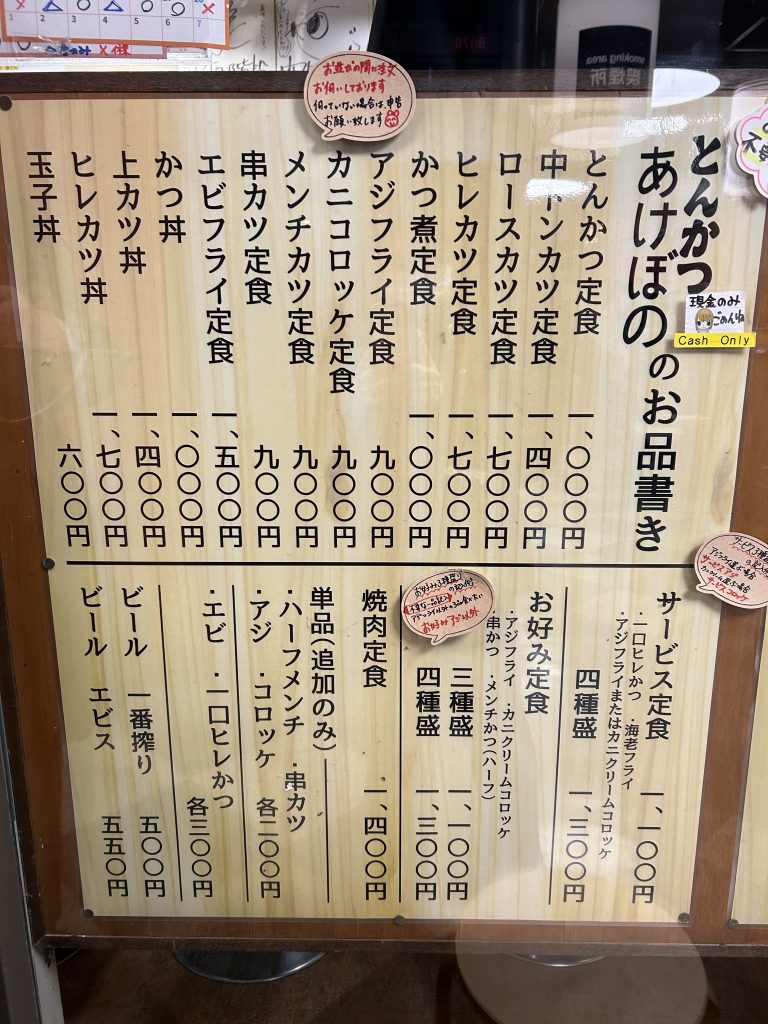 お並びの間に注文
お伺いしております
伺っていない場合は、申告
お願い致します
smoking area
喫煙所
とんかつ
あけぼののお品書き
現金のみ
ごめんね
Cash Only
とんかつ定食 一、〇〇〇円
中トンカツ定食 一、四〇〇円
ロースカツ定食 一、七〇〇円
ヒレカツ定食 一、七〇〇円
かつ煮定食 一、〇〇〇円
アジフライ定食 九〇〇円
カニコロッケ定食 九〇〇円
メンチカツ定食 九〇〇円
串カツ定食 九〇〇円
エビフライ定食 一、五〇〇円
かつ丼 一、〇〇〇円
上カツ丼 一、四〇〇円
ヒレカツ丼 一、七〇〇円
玉子丼 六〇〇円
サービス定食 一、一〇〇円
・一口ヒレかつ ・海老フライ
・アジフライまたはカニクリームコロッケ
四種盛 一、三〇〇円
お好み定食
・アジフライ ・カニクリームコロッケ
・串かつ ・メンチかつ(ハーフ)
三種盛 一、一〇〇円
四種盛 一、三〇〇円
お好みアジ以外
サービスアジ
サービスコロッケ
焼肉定食 一、四〇〇円
単品(追加のみ)
・ハーフメンチ ・串カツ
・アジ ・コロッケ 各二〇〇円
・エビ ・一口ヒレかつ 各三〇〇円
ビール 一番搾り 五〇〇円
ビール エビス 五五〇円